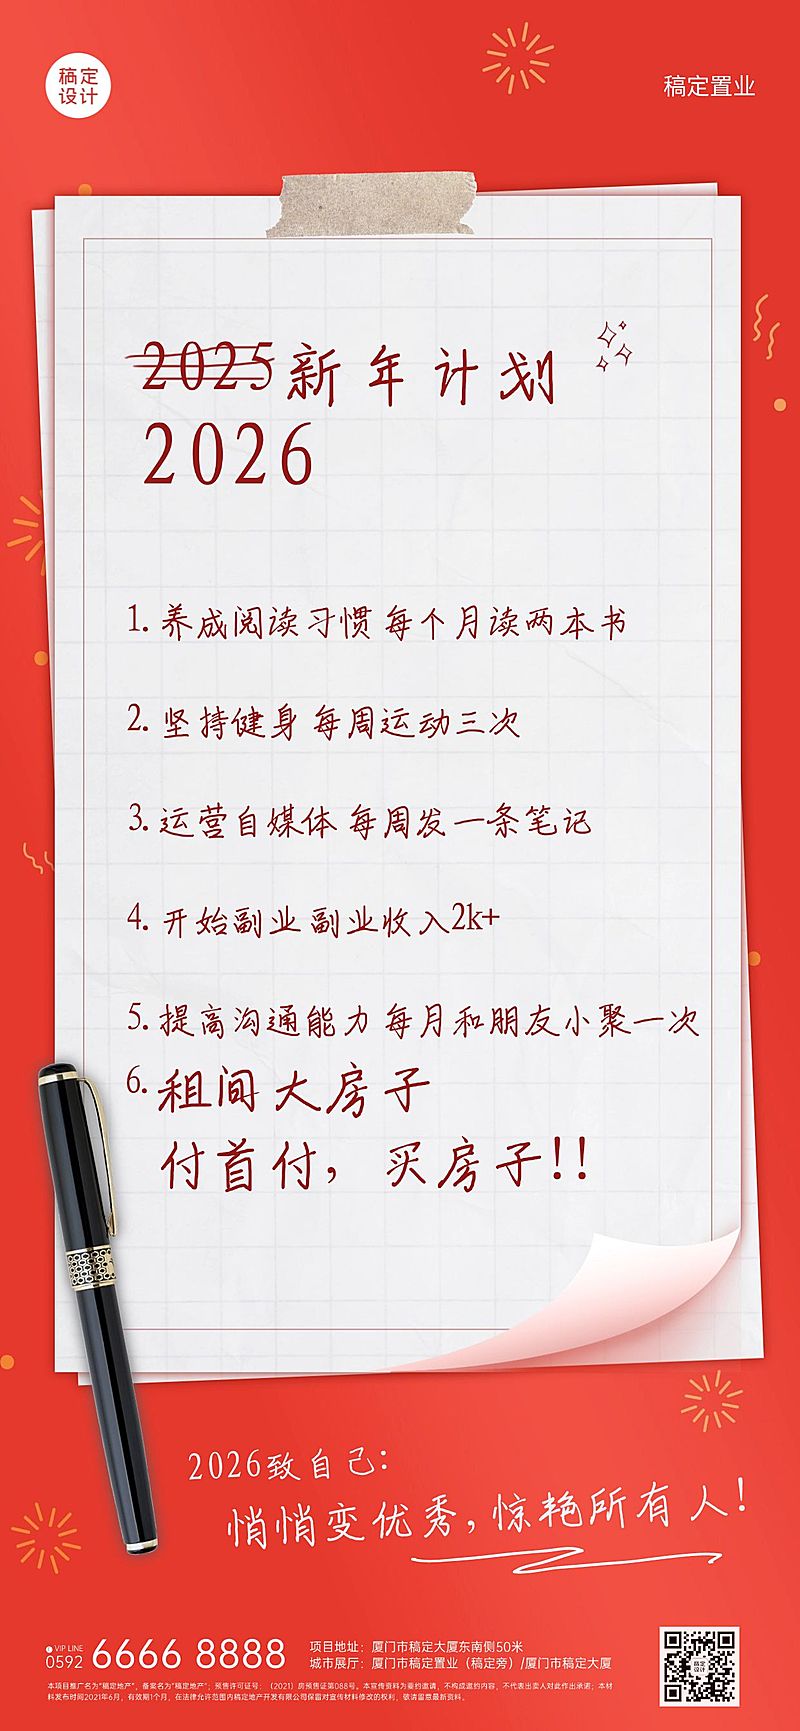 稿定
设计
稿定置业
2025新年计划
2026
1. 养成阅读习惯 每个月读两本书
2. 坚持健身 每周运动三次
3. 运营自媒体 每周发一条笔记
4. 开始副业 副业收入2k+
5. 提高沟通能力 每月和朋友小聚一次
6. 租间大房子
付首付，买房子!!
2026致自己:
悄悄变优秀,惊艳所有人!
VIP LINE
0592 6666 8888
项目地址：厦门市稿定大厦东南侧50米
城市展厅：厦门市稿定置业（稿定旁）/厦门市稿定大厦
本项目推广名为“稿定地产”，备案名为“稿定地产”；预售许可证号：（2021）房预售证第088号。本宣传资料为要约邀请，不构成邀约内容，不代表出卖人对此作出承诺；本材
料发布时间2021年6月，有效期1个月，在法律允许范围内稿定地产开发有限公司保留对宣传材料修改的权利，敬请留意最新资料。
稿定
设计